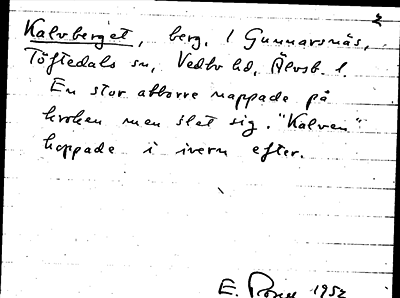 Kalvberget, berg, i Gunnarsnäs,
Töftedals sn, Vedbo hd, Älvsb. l.
En stor abborre nappade på
kroken men slet sig. "Kalven"
hoppade i ivern efter.
E. 1952